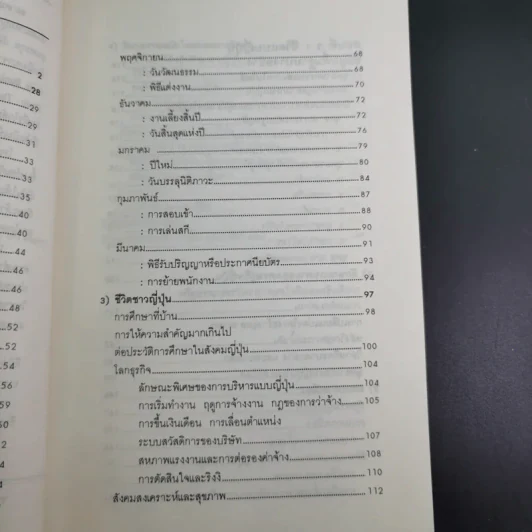 พฤศจิกายน 68
: วันวัฒนธรรม 68
: พิธีแต่งงาน 70
ธันวาคม 72
: งานเลี้ยงสิ้นปี 72
: วันสิ้นสุดแห่งปี 76
มกราคม 79
: ปีใหม่ 80
: วันบรรลุนิติภาวะ 84
กุมภาพันธ์ 87
: การสอบเข้า 88
: การเล่นสกี 90
มีนาคม 91
: พิธีรับปริญญาหรือประกาศนียบัตร 93
: การย้ายพนักงาน 94
3) ชีวิตชาวญี่ปุ่น 97
การศึกษาที่บ้าน 98
การให้ความสำคัญมากเกินไป
ต่อประวัติการศึกษาในสังคมญี่ปุ่น 100
โลกธุรกิจ 104
ลักษณะพิเศษของการบริหารแบบญี่ปุ่น 104
การเริ่มทำงาน ฤดูการจ้างงาน กฎของการว่าจ้าง 105
การขึ้นเงินเดือน การเลื่อนตำแหน่ง
ระบบสวัสดิการของบริษัท 107
สหภาพแรงงานและการต่อรองค่าจ้าง 108
การตัดสินใจและริงงิ 110
สังคมสงเคราะห์และสุขภาพ 112
2
28
29
29
31
33
33
35
40
40
44